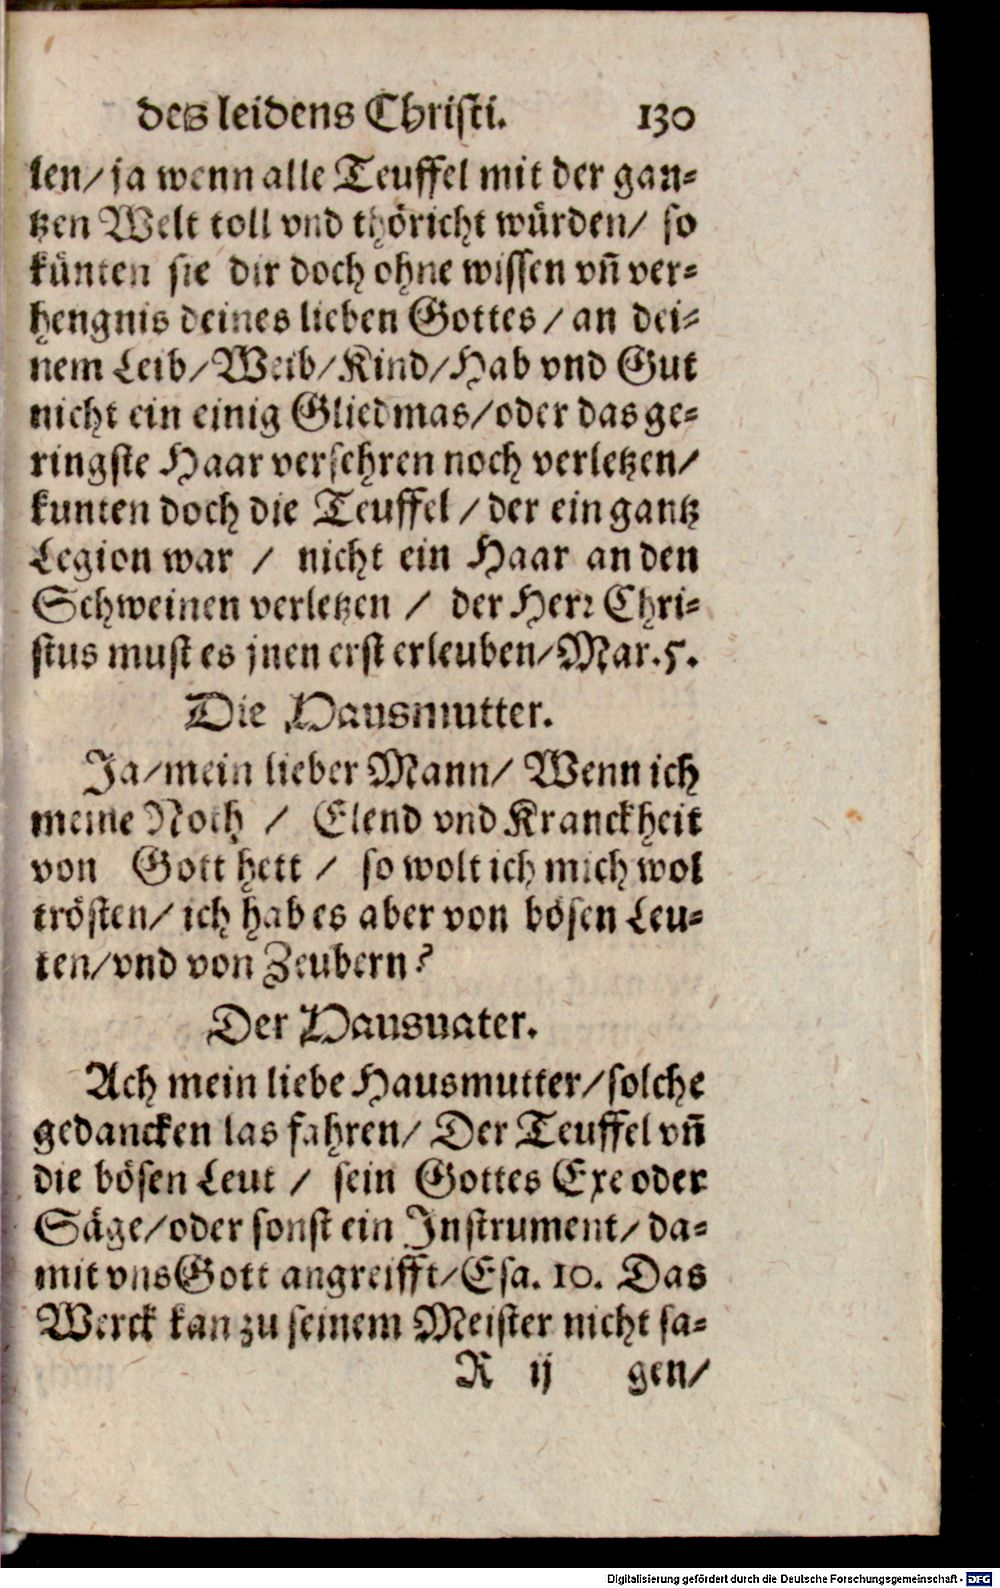 des leidens Christi. 130
len/ ja wenn alle Teuffel mit der gan⸗
tzen Welt toll vnd thöricht würden/ so
künten sie dir doch ohne wissen vñ ver⸗
hengnis deines lieben Gottes / an dei⸗
nem Leib/ Weib/ Kind/ Hab vnd Gut
nicht ein einig Gliedmas/ oder das ge⸗
ringste Haar versehren noch verletzen/
kunten doch die Teuffel / der ein gantz
Legion war / nicht ein Haar an den
Schweinen verletzen / der Herr Chri⸗
stus must es jnen erst erleuben/ Mar. 5.
Die Hausmutter.
Ja/ mein lieber Mann/ Wenn ich
meine Noth / Elend vnd Kranckheit
von Gott hett / so wolt ich mich wol
trösten/ ich hab es aber von bösen Leu⸗
ten/ vnd von Zeubern?
Der Hausuater.
Ach mein liebe Hausmutter/ solche
gedancken las fahren/ Der Teuffel vñ
die bösen Leut / sein Gottes Exe oder
Säge/ oder sonst ein Instrument/ da⸗
mit vns Gott angreifft/ Esa. 10. Das
Werck kan zu seinem Meister nicht sa⸗
R ij gen/
Digitalisierung gefördert durch die Deutsche Forschungsgemeinschaft - DFG